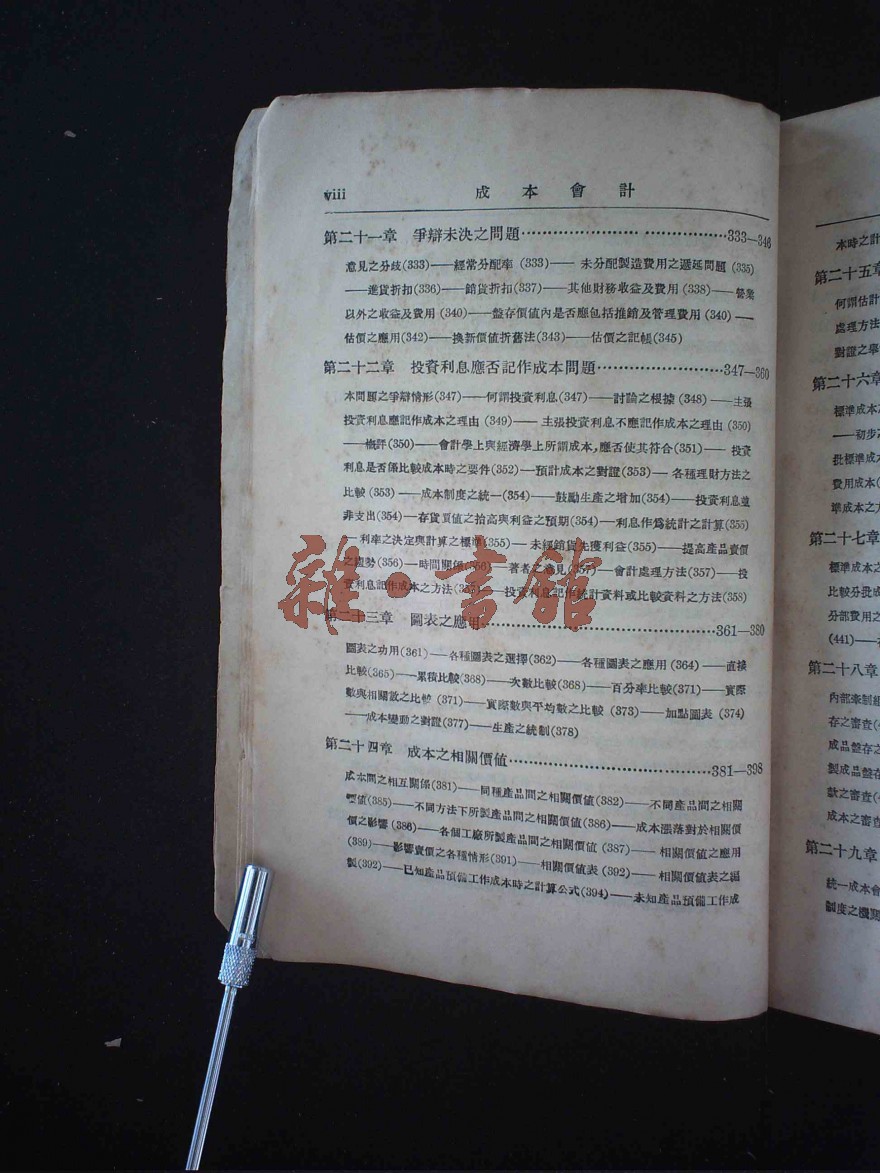 viii 成本會計
第二十一章 爭辯未決之問題……333—346
意見之分歧(333)——經常分配率(333)——未分配製造費用之遞延問題(335)
——進貨折扣(336)——銷貨折扣(337)——其他財務收益及費用(338)——營業
以外之收益及費用(340)——盤存價値內是否應包括推銷及管理費用(340)——
估價之應用(342)——換新價値折舊法(343)——估價之記帳(345)
第二十二章 投資利息應否記作成本問題……347—360
本問題之爭辯情形(347)——何謂投資利息(347)——討論之根據(348)——主張
投資利息應記作成本之理由(349)——主張投資利息不應記作成本之理由(350)
——槪評(350)——會計學上與經濟學上所謂成本,應否使其符合(351)——投資
利息是否係比較成本時之要件(352)—預計成本之對證(353)—各種理財方法之
比較(353)——成本制度之統一(354)——鼓勵生產之增加(354)——投資利息並
非支出(354)—存貨價值之抬高與利益之預期(354)—利息作爲統計之計算(355)
—利率之決定與計算之標準(355)——未經銷貨先獲利益(355)——提高產品賣價
之趨勢(356)—時間關係(356)—著者之意見(357)—會計處理方法(357)——投
資利息記作成本之方法(357)——投資利息記作統計資料或比較資料之方法(358)
第二十三章 圖表之應用……361—380
圖表之功用(361)——各種圖表之選擇(362)——各種圖表之應用(364)——直接
比較(365)——累積比較(368)——次數比較(368)——百分率比較(371)——實際
數與相關數之比較(371)——實際數與平均數之比較(373)——加點圖表(374)
——成本變動之對證(377)——生產之統制(378)
第二十四章 成本之相關價値……381—398
成本間之相互關係(381)——同種產品間之相關價値(382)——不同產品間之相關
價値(385)——不同方法下所製產品間之相關價値(386)——成本漲落對於相關價
價之影響(386)——各個工廠所製產品間之相關價値(387)——相關價値之應用
(389)——影響賣價之各種情形(391)——相關價値表(392)——相關價値表之編
製(392)——已知產品預備工作成本時之計算公式(394)——未知產品預備工作成
雜·書館
本時之計
第二十五章
何謂估計
處理方法
對證之舉
第二十六章
標準成本
——初步
批標準成本
費用成本
準成本之方
第二十七章
標準成本之
比較分批成
分部費用之
(441)——
第二十八章
內部牽制組
存之審查
成品盤存之
製成品盤存
歎之審查
成本之審查
第二十九章
統一成本會
制度之機